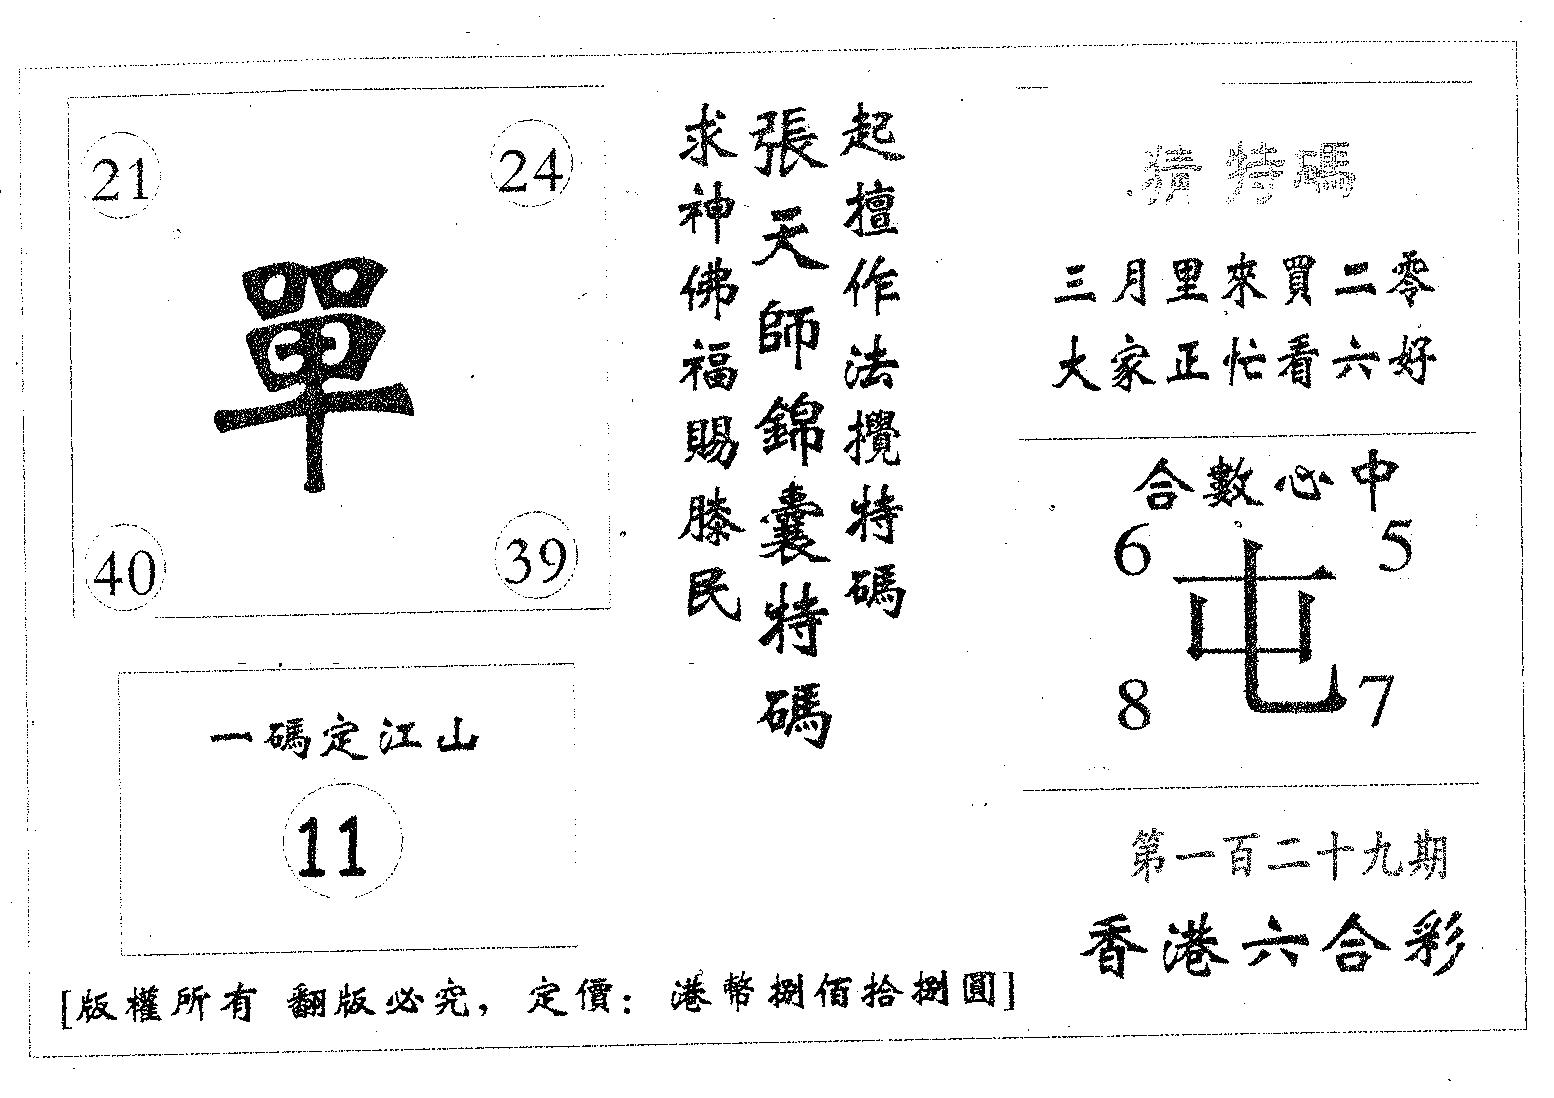 21
24
單
40
39
一碼定江山
11
起擅作法攪特碼
張天師錦囊特碼
求神佛福賜滕民
猜特碼
三月里來買二零
大家正忙看六好
合數必中
6
5
屯
8
7
第一百二十九期
香港六合彩
[版權所有 翻版必究，定價：港幣捌佰拾捌圓]